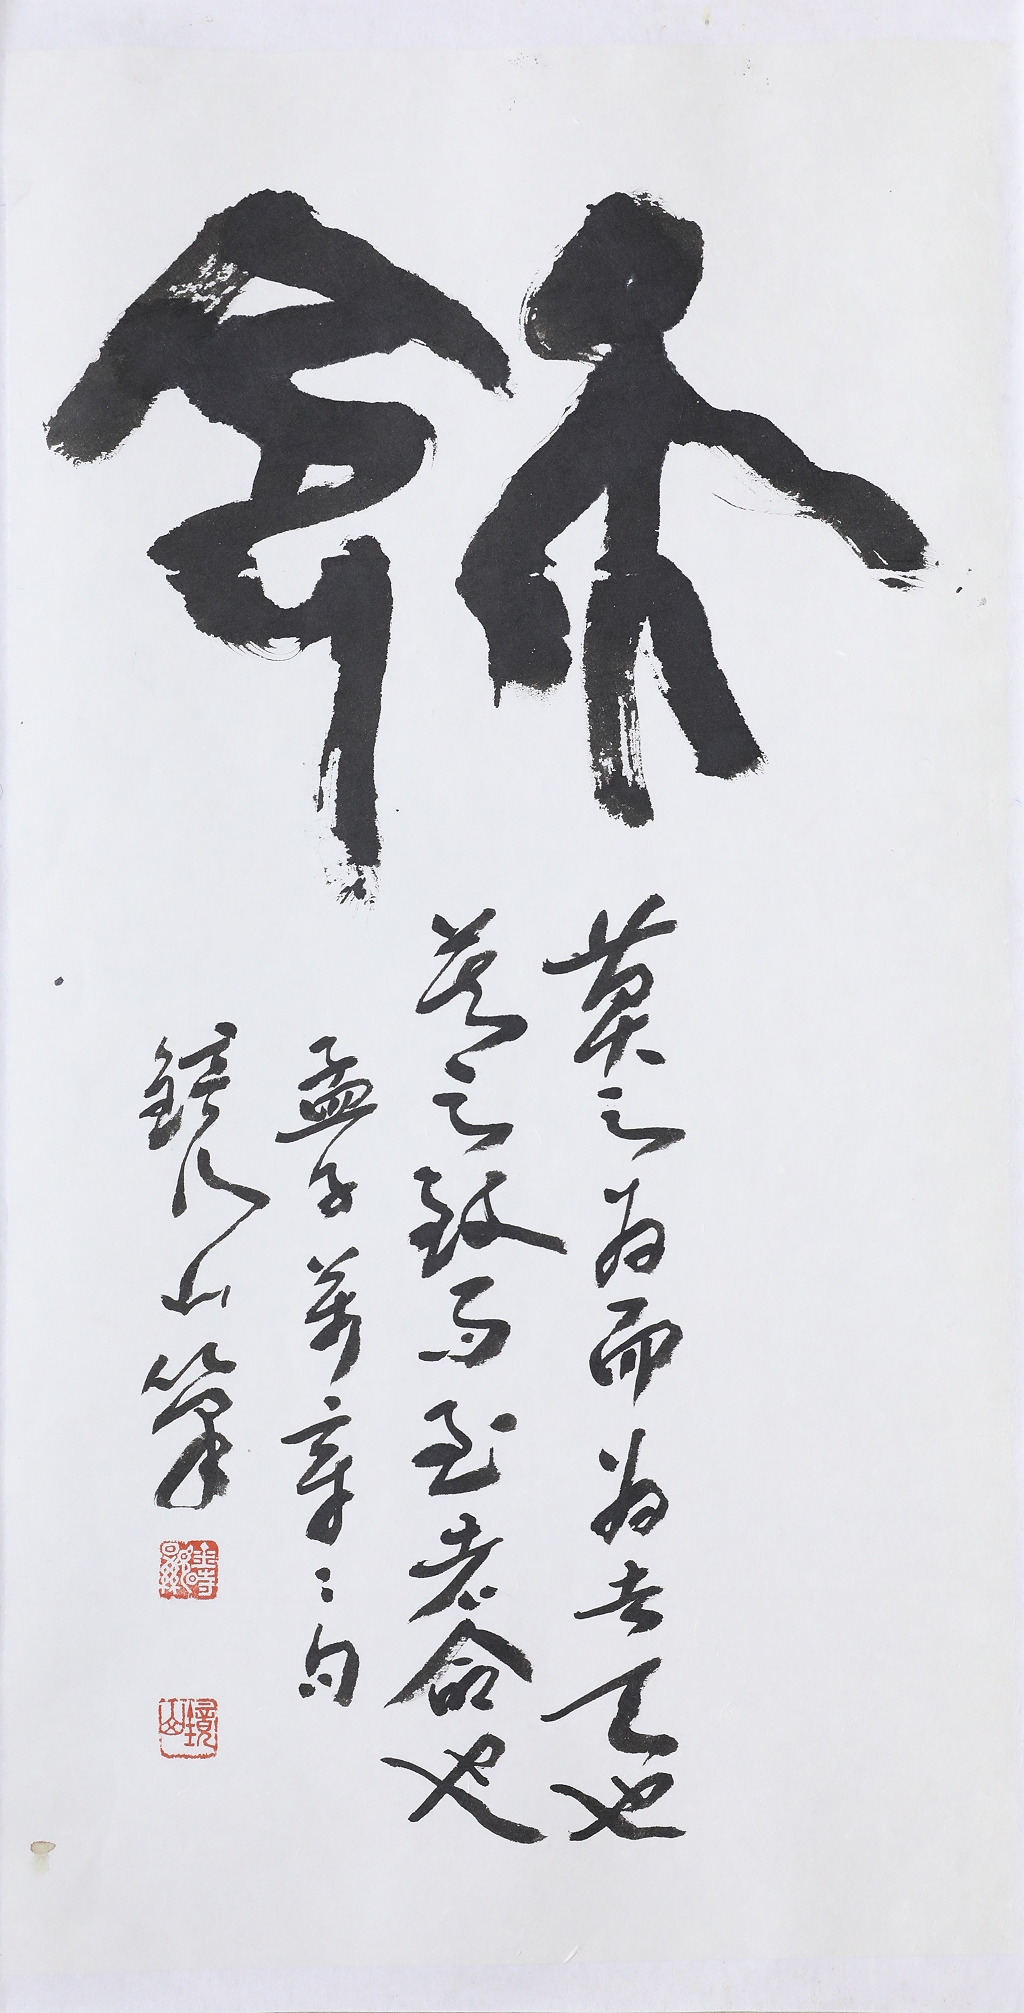 天命
莫之為而為者天也
莫之致而至者命也
孟子萬章之句
鏡山筆
鏡山